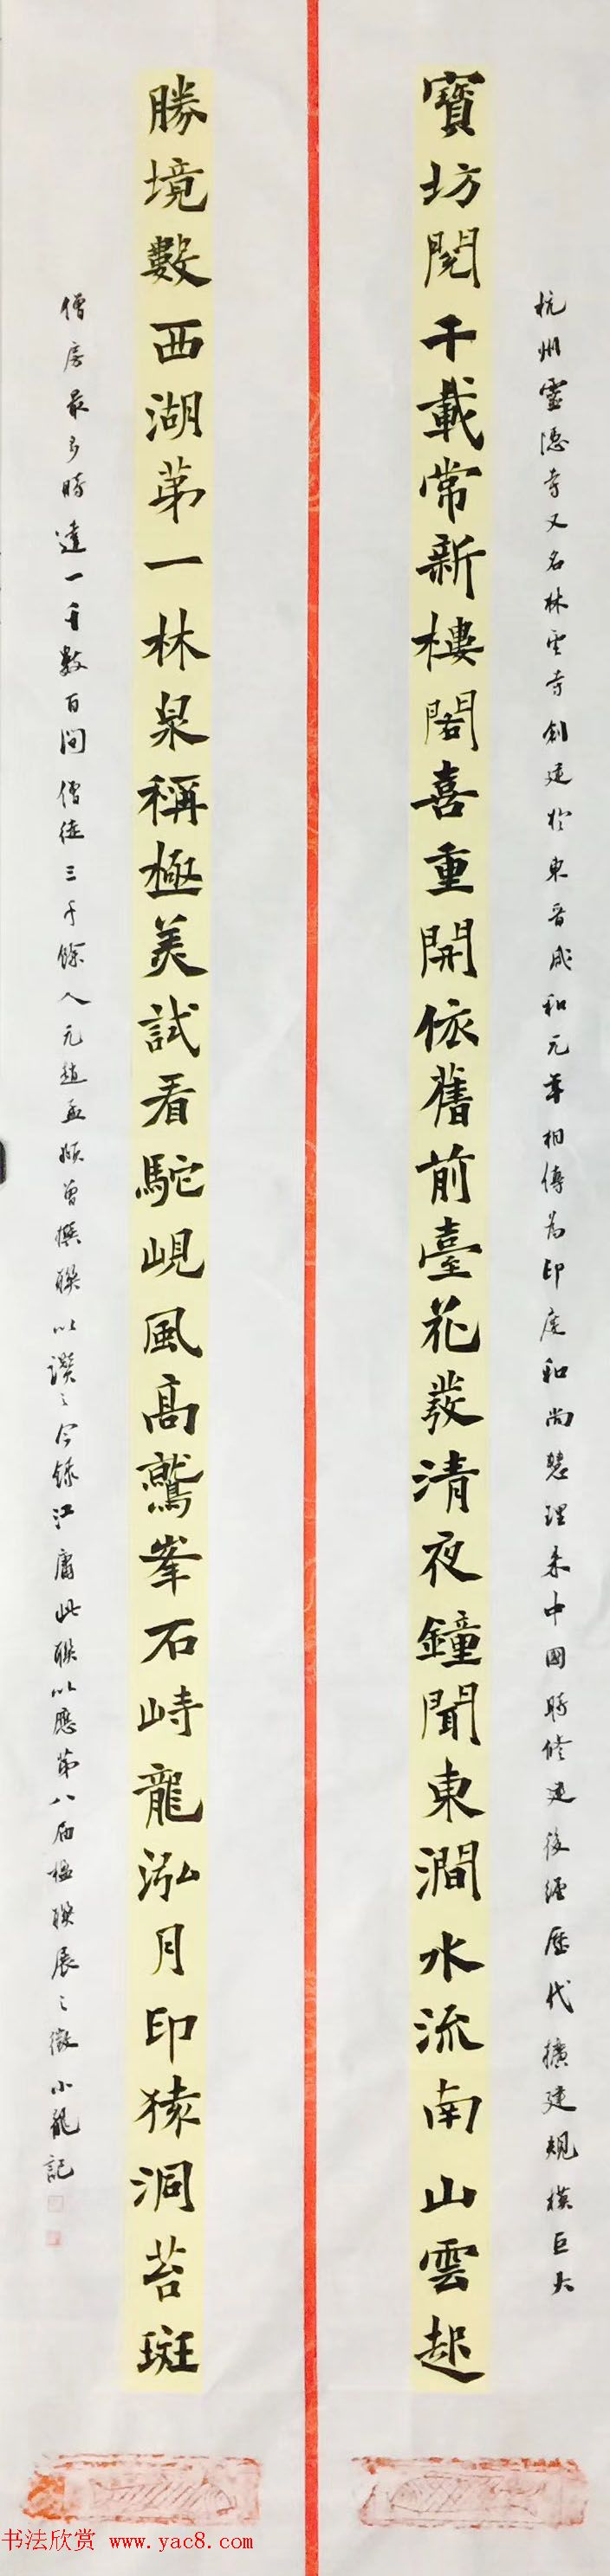 杭州靈隱寺又名林雲寺創建於東晉咸和元年相傳為印度和尚慧理來中國時修建後經歷代擴建規模巨大
寶坊閱千載常新樓閣喜重開依舊前臺花發清夜鐘聞東澗水流南山雲起
勝境數西湖第一林泉稱極美試看駝峴風高鷲峯石峙龍泓月印猿洞苔斑
僧房最多時達一千數百間僧徒三千餘人元趙孟頫曾撰聯以讚之今錄江庸此聯以應第八屆楹聯展之徵小龍記
书法欣赏 www.yac8.com